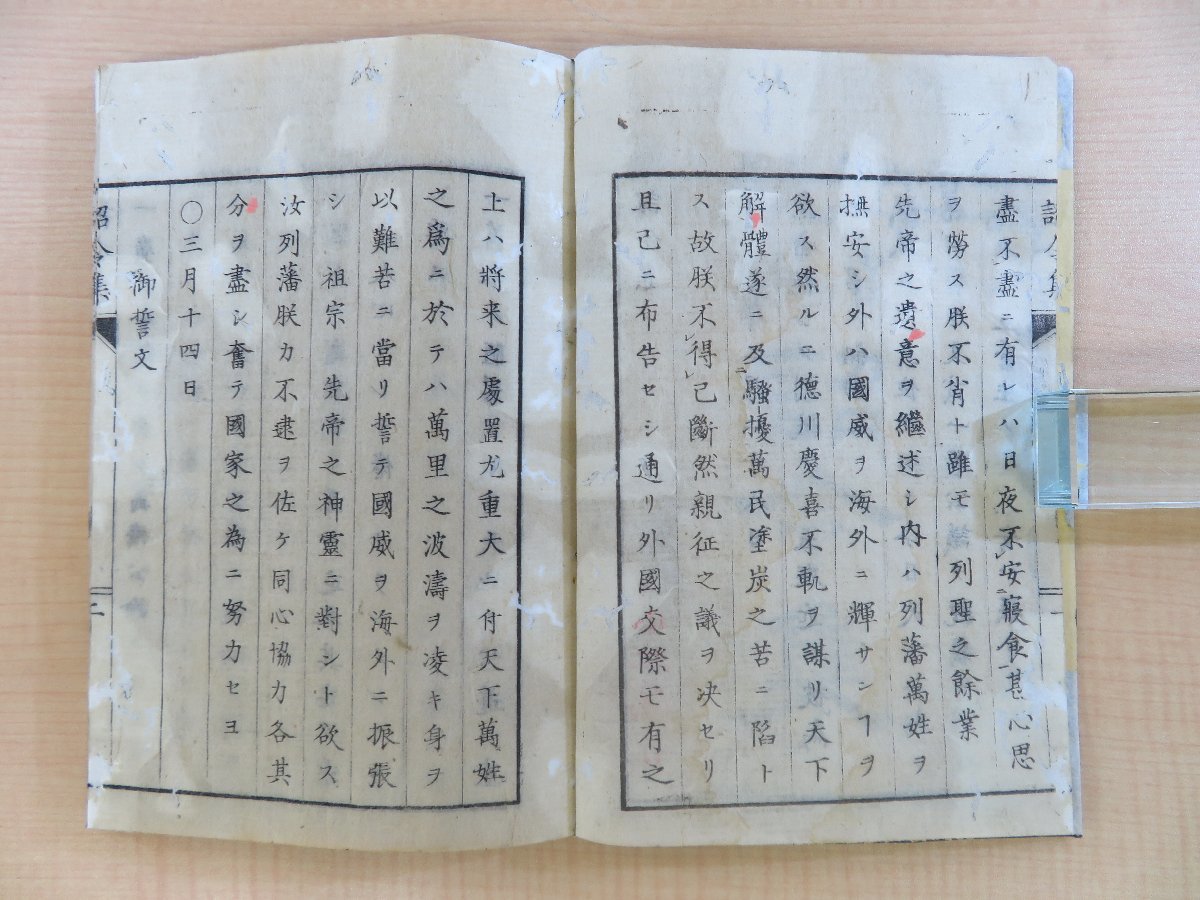 盡不盡ニ有レハ日夜不安寢食甚心思
ヲ勞ス朕不肖ト雖モ 列聖之餘業
先帝之遺意ヲ繼述シ内ハ列藩萬姓ヲ
撫安シ外ハ國威ヲ海外ニ輝サンヿヲ
欲ス然ルニ德川慶喜不軌ヲ謀リ天下
解體遂ニ及騷擾萬民塗炭之苦ニ陷ト
ス故朕不得已斷然親征之議ヲ决セリ
且已ニ布告セシ通リ外國交際モ有之
上ハ將来之處置尤重大ニ付天下萬姓
之爲ニ於テハ萬里之波濤ヲ凌キ身ヲ
以難苦ニ當リ誓テ國威ヲ海外ニ振張
シ 祖宗 先帝之神靈ニ對シト欲ス
汝列藩朕カ不逮ヲ佐ケ同心協力各其
分ヲ盡シ奮テ國家之為ニ努力セヨ
〇三月十四日
御誓文
詔令集
二